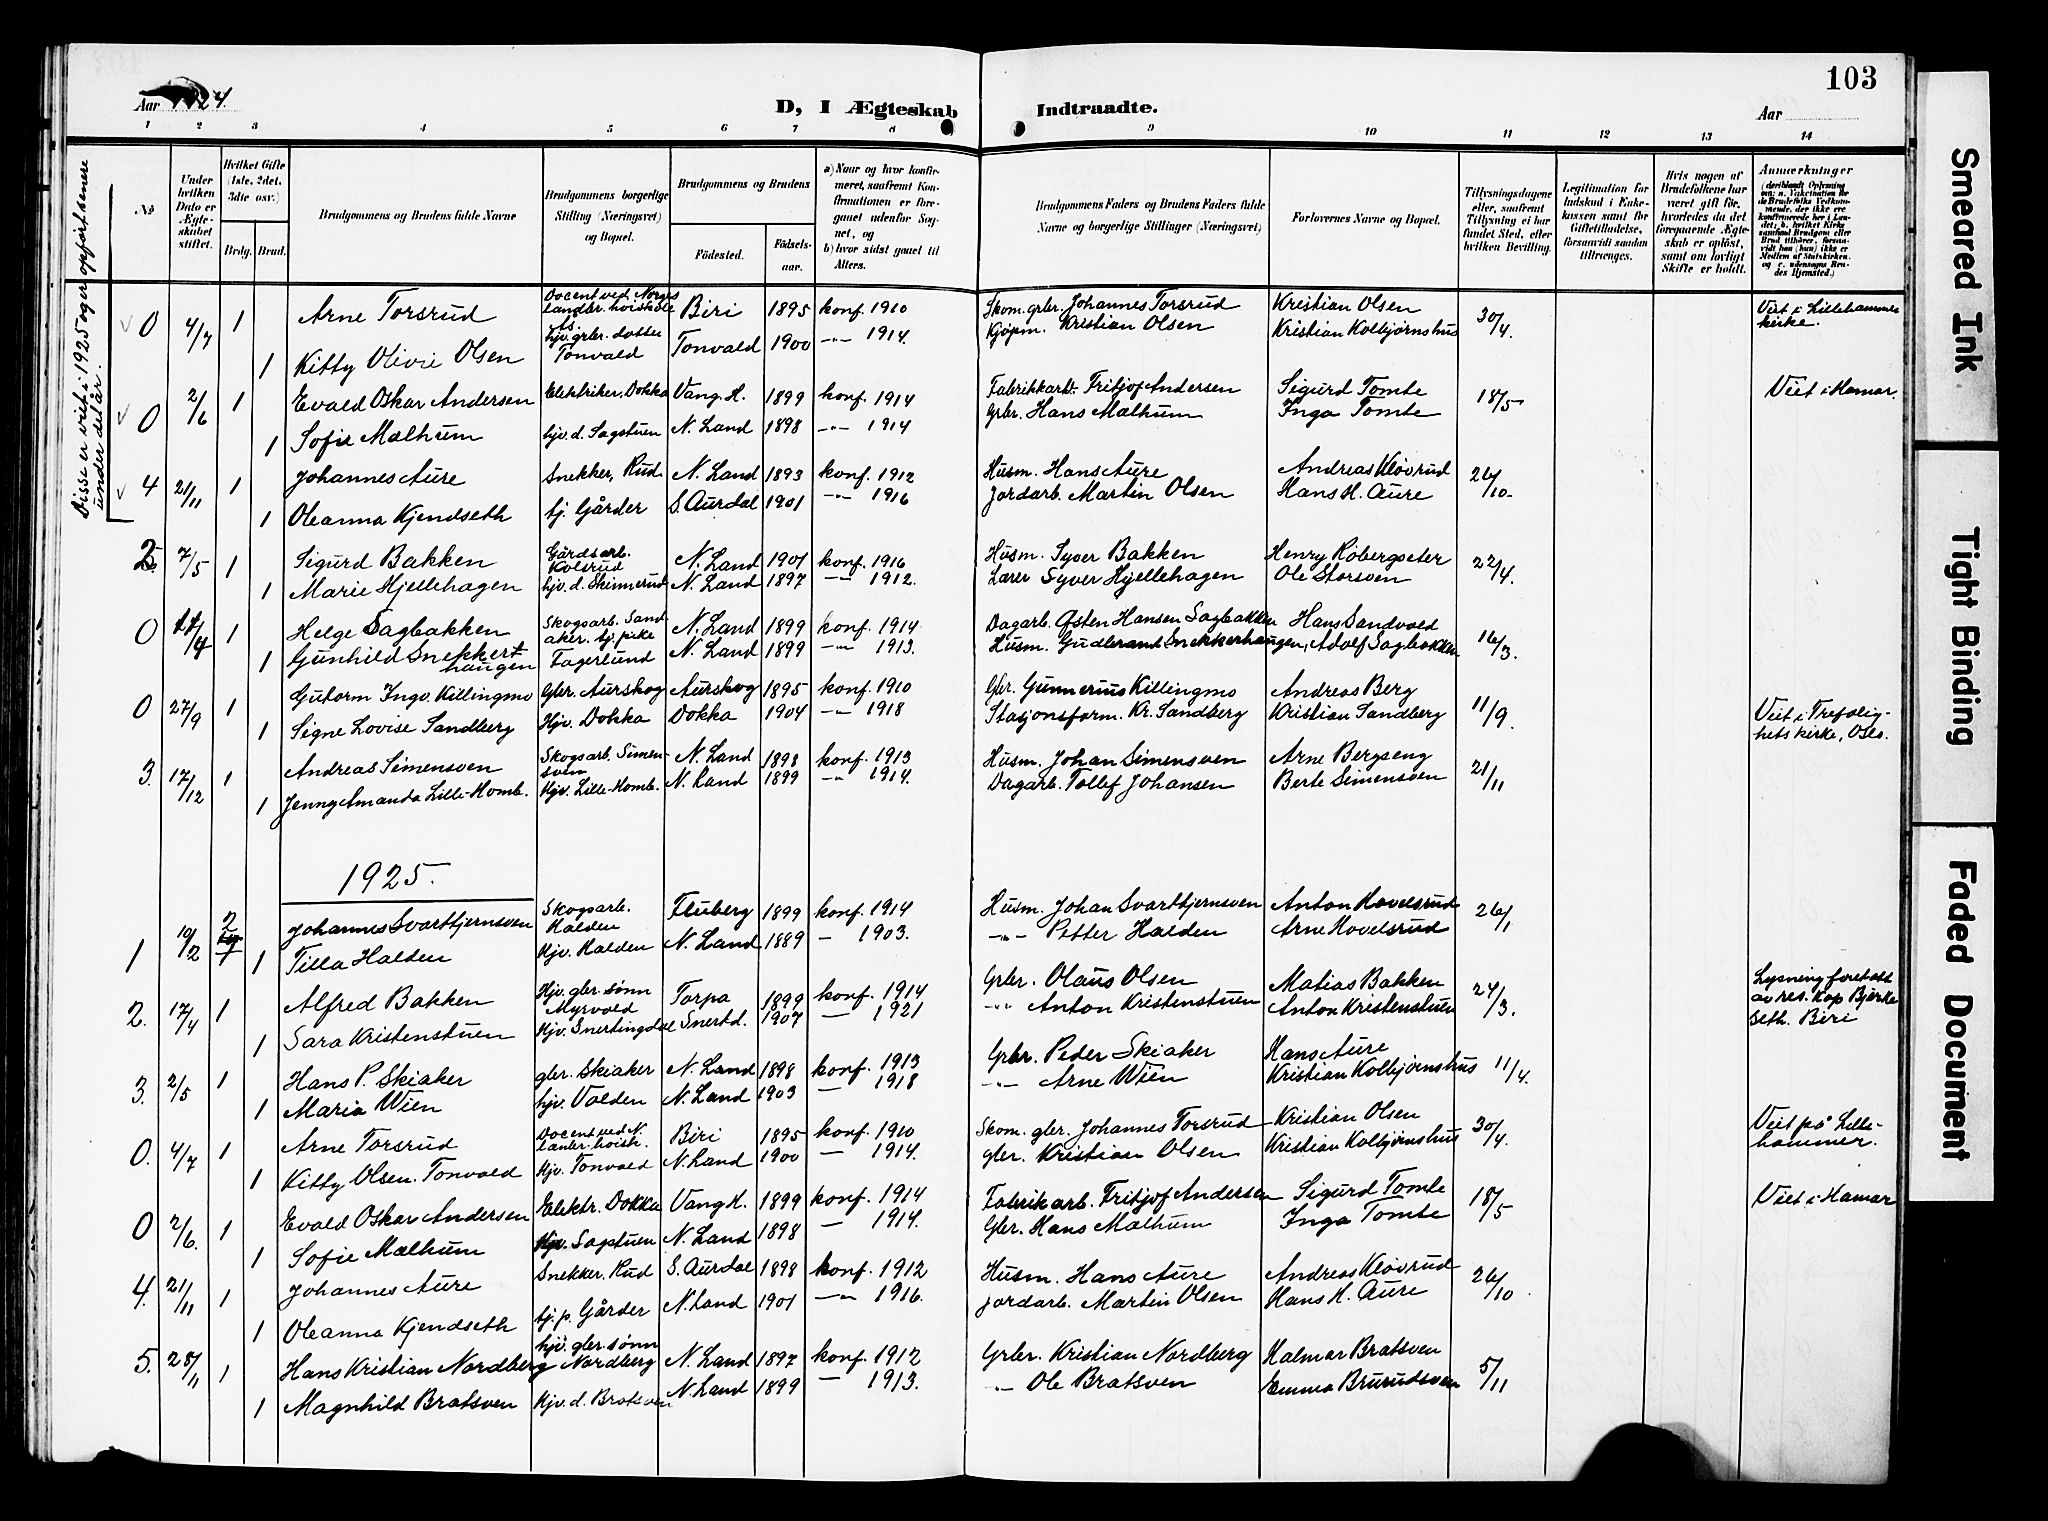 Aar 1924.
D, I Ægteskab Indtraadte.
Aar
103
1 2 3 4 5 6 7 8 9 10 11 12 13 14
No
Under hvilken Dato er Ægteskabet stiftet.
Hvilket Gifte (1ste, 2det, 3dte osv.)
Brdg. Brud.
Brudgommens og Brudens fulde Navne
Brudgommens borgerlige Stilling (Næringsvei) og Bopæl.
Brudgommens og Brudens
Fødested.
Fødselsaar.
a) Naar og hvor konfirmeret, saafremt Konfirmationen er foregaaet udenfor Sognet, og
b) hvor sidst gaaet til Alters.
Brudgommens Faders og Brudens Faders fulde Navne og borgerlige Stillinger (Næringsvei)
Forlovernes Navne og Bopæl.
Tillysningsdagene eller, saafremt Tillysning ei har fundet Sted, efter hvilken Bevilling.
Legitimation for Indskud i Enkekassen samt for Giftetilladelse, forsaavidt saadan tiltrænges.
Hvis nogen af Brudefolkene har været gift før, hvorledes da det foregaaende Ægteskab er opløst, samt om lovligt Skifte er holdt.
Anmærkninger
(deriblandt Oplysning om: a. Vaccination for de Brudefolks Vedkommende, der ikke ere konfirmerede her i Landet; b. hvilket Kirkesamfund Brudgom eller Brud tilhører, forsaavidt han (hun) ikke er Medlem af Statskirken, og c. udensogns Brudes Hjemsted.)
Disse er viet i 1925 og er opført senere under det år.
0 4/7 1 Arne Torsrud Docent ved Norges landbr. høiskole Ås Biri 1895 konf. 1910 Skom. grbr. Johannes Torsrud Kristian Olsen 30/4. Viet i Lillehammer kirke.
1 Kitty Olivie Olsen hjv. grbr. datter Tonvald Tonvald 1900 -"- 1914. Kjøpm. Kristian Olsen Kristian Kolbjørnshus
0 2/6 1 Evald Oskar Andersen Elektriker, Dokka Vang. H. 1899 konf. 1914 Fabrikkarb. Fritjof Andersen Sigurd Tomte 18/5 Viet i Hamar.
1 Sofie Mælhum hjv. d. Sagstuen N. Land 1898 -"- 1914 Grbr. Hans Mælhum Inga Tomte
4 21/11 1 Johannes Aure Snekker, Rud N. Land 1893 konf. 1912 Husm. Hans Aure Andreas Kløvrud 26/10.
1 Oleanna Kjendseth tj. Gårder S. Aurdal 1901 -"- 1916 Jordarb. Martin Olsen Hans H. Aure
2. 7/5 1 Sigurd Bakken Gårdsarb. Kolsrud N. Land 1901 konf. 1916 Husm. Syver Bakken Henry Robergseter 22/4.
1 Marie Hjellehagen hjv. d. Skinnerud N. Land 1897 -"- 1912. Lærer Syver Hjellehagen Ole Storsven
0 /4 1 Helge Sagbakken Skogsarb. Sandaker. N. Land 1899 konf. 1914 Dagarb. Østen Hansen Sagbakken Hans Sandvold 16/3.
1 Gunhild Snekkerhaugen tj. pike Fagerlund N. Land 1899 -"- 1913. Husm. Gudbrand Snekkerhaugen, Adolf Sagbakken
0 27/9 1 Gutorm Ingv. Killingmo Gbr. Aurskog Aurskog 1895 konf. 1910 Gbr. Gunnerius Killingmo Andreas Berg 11/9. Viet i Trefolighets kirke, Oslo.
1 Signe Lovise Sandberg Hjv. Dokka Dokka 1904 -"- 1918 Stasjonsform. Kr. Sandberg Kristian Sandberg
3. 17/12 1 Andreas Simensven Skogsarb. Simensven N. Land 1898 konf. 1913 Husm. Johan Simensven Arne Bergseng 21/11
1 Jenny Amanda Lille-Homb. Hjv. Lille-Homb. N. Land 1899 -"- 1914. Dagarb. Tollef Johansen Berte Simensven
1925.
1 10/2 2 Johannes Svartbjernsven Skogsarb. Halden Fluberg 1899 konf. 1914 Husm. Johan Svartbjernsven Anton Hovdsrud 26/1
1 Tilla Halden Hjv. Halden N. Land 1889 - 1903. -"- Petter Halden Arne Hovelsrud
2. 17/4 1 Alfred Bakken Hjv. gbr. sønn Myrvold Torpa 1899 konf. 1914 Grbr. Olaus Olsen Matias Bakken 24/3. Lysning foretatt av res. Kap Bjerkeseth. Biri
1 Sara Kristenstuen Hjv. Snertingdal Snertd. 1907 - 1921 -"- Anton Kristenstuen Anton Kristenstuen
3. 2/5 1 Hans P. Skiaker gbr. Skiaker N. Land 1898 konf. 1913 Grbr. Peder Skiaker Hans Aure 11/4.
1 Maria Wien hjv. Volden N. Land 1903 - 1918 -"- Arne Wien Kristian Kolbjørnshus
0. 4/7 1 Arne Torsrud Docent ved N. lanbr. høisk. Biri 1895 konf. 1910 Skom. gbr. Johannes Torsrud Kristian Olsen 30/4. Viet på Lillehammer.
1 Kitty Olsen. Tonvald Hjv. Tonvald N. Land 1900 - 1914. gbr. Kristian Olsen Kristian Kolbjørnshus
0 2/6. 1 Evald Oskar Andersen Elektr. Dokka Vang H. 1899 konf. 1914 Fabrikarb. Fritjof Andersen Sigurd Tomte 18/5 Viet i Hamar
1 Sofie Mælhum Hjv. Sagstuen N. Land 1898 - 1914. Gbr. Hans Mælhum Inga Tomte
4. 21/11 1 Johannes Aure Snekker. Rud S. Aurdal 1898 konf. 1912 Husm. Hans Aure Andreas Kløvrud 26/10.
1 Oleanna Kjendseth tj. p. Gårder N. Land 1901 -"- 1916. Jordarb. Martin Olsen Hans H. Aure
5. 28/11 1 Hans Kristian Nordberg hjv. gbr. sønn Nordberg N. Land 1897 konf. 1912 Grbr. Kristian Nordberg Halmar Bratsven 5/11
1 Magnhild Bratsven Hjv. d. Bratsven N. Land 1899 - 1913. -"- Ole Bratsven Emma Brurudsven
Smeared Ink
Tight Binding
Faded Document